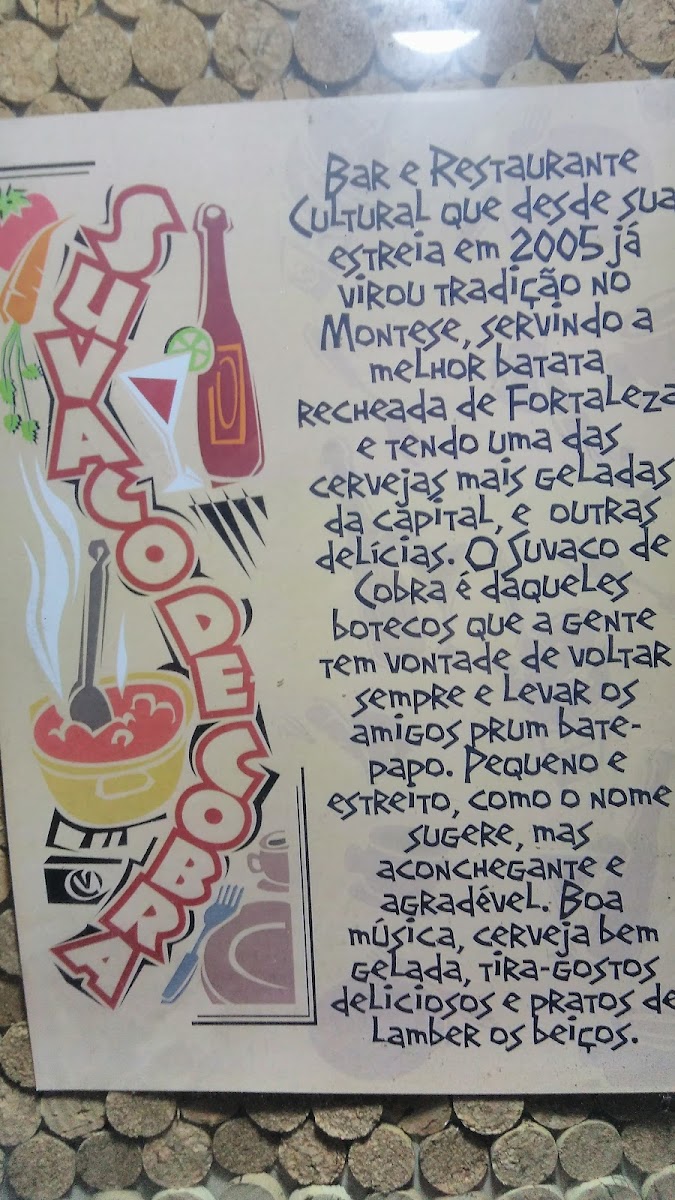 SUVACO DE COBRA
Bar e Restaurante
Cultural que desde sua
estreia em 2005 já
virou tradição no
Montese, servindo a
melhor batata
recheada de Fortaleza
e tendo uma das
cervejas mais geladas
da capital, e outras
delícias. O Suvaco de
Cobra é daqueles
botecos que a gente
tem vontade de voltar
sempre e levar os
amigos prum bate-
papo. Pequeno e
estreito, como o nome
sugere, mas
aconchegante e
agradével. Boa
música, cerveja bem
gelada, tira-gostos
deliciosos e pratos de
lamber os beiços.